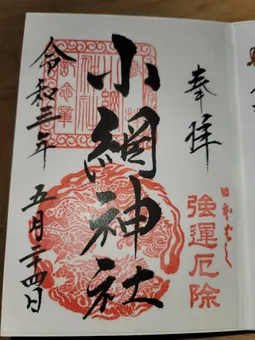 奉拝
強運厄除
小網神社
令和三年
五月二四日